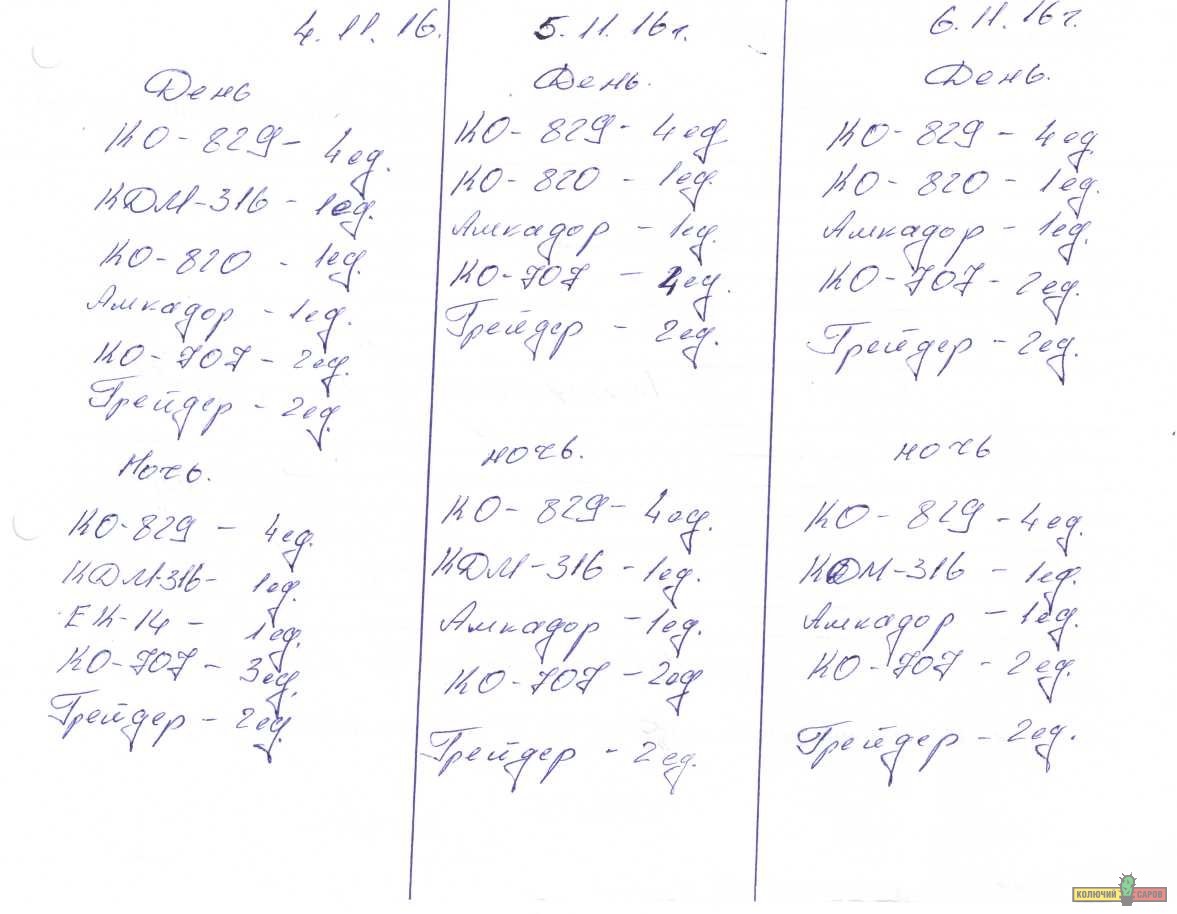 4.11.16.
День
КО-829- 4ед.
КДМ-316 - 1ед.
КО-820 - 1ед.
Амкадор - 1ед.
КО-707 - 2ед.
Грейдер - 2ед.
Ночь.
КО-829 - 4ед.
КДМ-316- 1ед.
ЕК-14 - 1ед.
КО-707 - 3ед.
Грейдер - 2ед.
5.11.16г.
День.
КО-829- 4ед
КО-820 - 1ед.
Амкадор - 1ед.
КО-707 - 4ед.
Грейдер - 2ед.
ночь.
КО-829- 4ед.
КДМ-316 - 1ед.
Амкадор - 1ед.
КО-707 - 2ед
Грейдер - 2ед.
6.11.16г.
День.
КО-829- 4ед
КО-820 - 1ед.
Амкадор - 1ед.
КО-707 - 2ед.
Грейдер - 2ед.
ночь
КО-829 - 4ед.
КДМ-316 - 1ед.
Амкадор - 1ед.
КО-707 - 2ед.
Грейдер - 2ед.
КОЛЮЧИЙ САРОВ